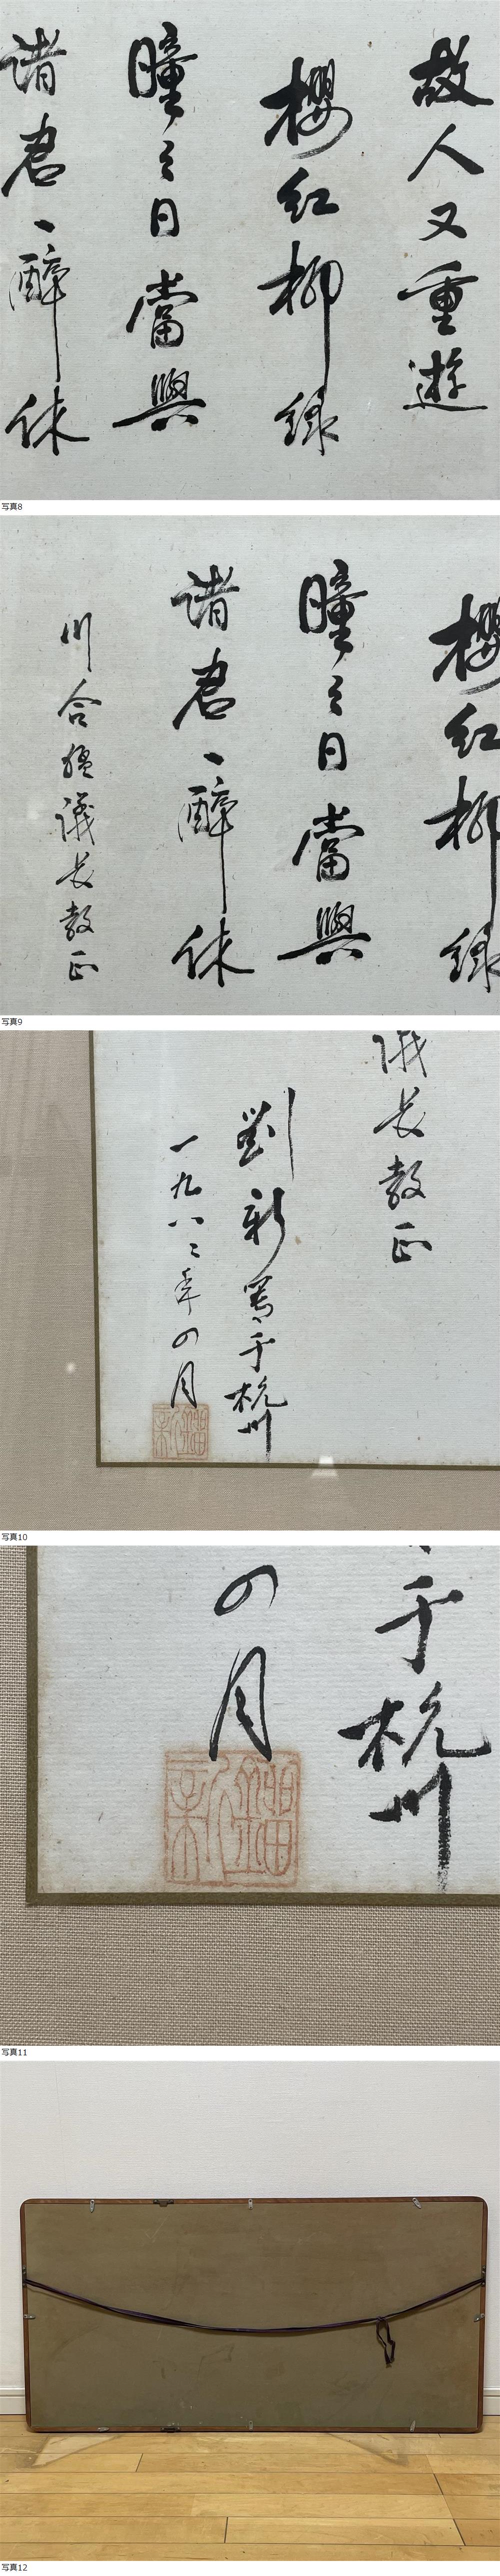 故人又重遊
櫻紅柳綠
瞳々日當興
諸君一醉休
写真8
櫻紅柳綠
瞳々日當興
諸君一醉休
川合 議長教正
写真9
議長教正
劉新 于杭州
一九八二年四月
写真10
于杭州
四月
写真11
写真12